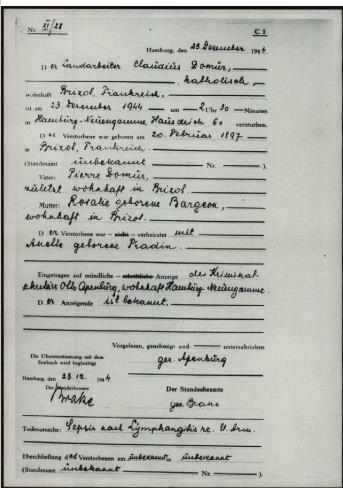 Nr. XI/28 C 1
Hamburg, den 23. Dezember 1944
Der Landarbeiter Claudius Domür,
katholisch,
wohnhaft Brizol, Frankreich,
ist am 23. Dezember 1944 um 2 Uhr 30 Minuten
in Hamburg-Neuengamme, Hausdeich 60 verstorben.
Der Verstorbene war geboren am 20. Februar 1897
in Brizol, Frankreich.
(Standesamt unbekannt Nr. ).
Vater: Pierre Domür,
zuletzt wohnhaft in Brizol.
Mutter: Rosalie geborene Bargeon,
wohnhaft in Brizol.
Der Verstorbene war — nicht — verheiratet mit
geborene Pradin.
Eingetragen auf mündliche — schriftliche Anzeige des Kriminal
sekretärs Otto Apenburg, wohnhaft Hamburg-Neuengamme.
Der Anzeigende ist bekannt.
Vorgelesen, genehmigt und unterschrieben
gez. Apenburg
Die Übereinstimmung mit dem
Erstbuch wird beglaubigt
Hamburg, den 23.12. 1944
Der Standesbeamte Der Standesbeamte
Todesursache: Sepsis nach Lymphangitis re. U. Arm.
Eheschließung des Verstorbenen am unbekannt in unbekannt
(Standesamt unbekannt Nr. ).